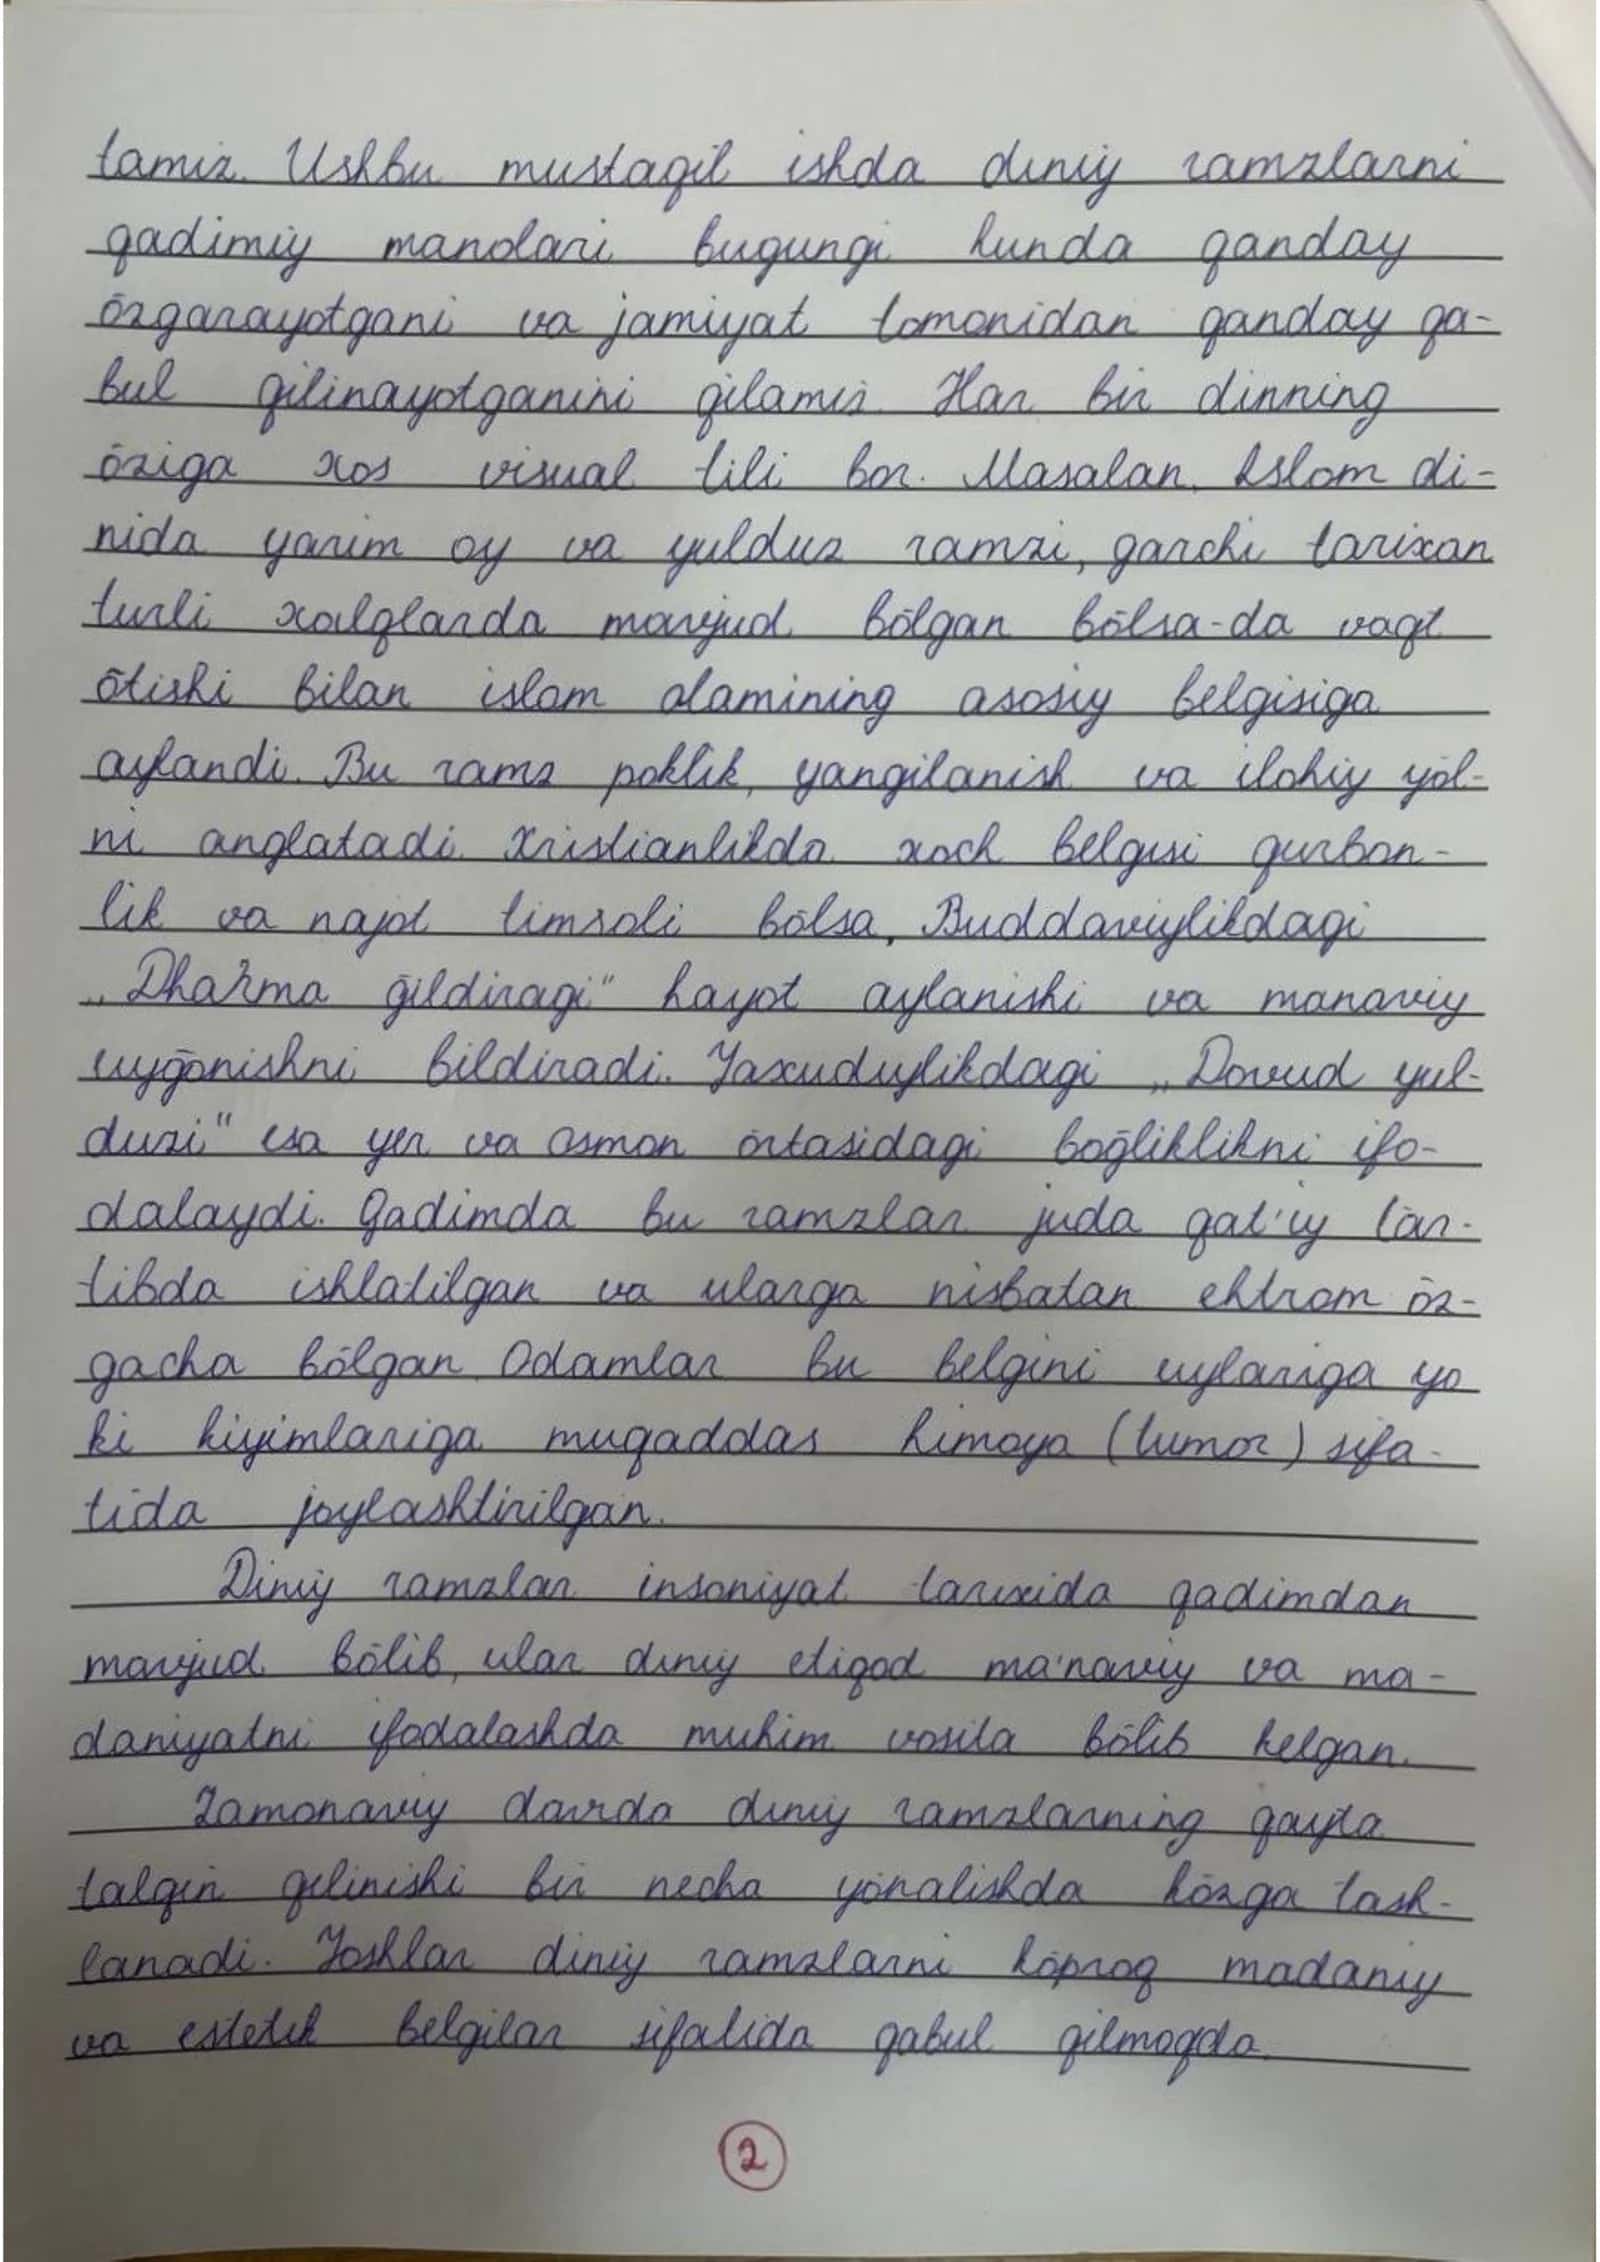 tamiz. Ushbu mustaqil ishda diniy ramzlarni
qadimiy manolari bugungi kunda qanday
ōzgarayotgani va jamiyat tomonidan qanday qa-
bul qilinayotganini qilamiz. Har bir dinning
ōziga xos visual tili bor. Masalan, Islom di-
nida yarim oy va yulduz ramzi, garchi tarixan
turli xalqlarda mavjud bōlgan bōlsa-da vaqt
ōtishi bilan islom olamining asosiy belgisiga
aylandi. Bu ramz poklik, yangilanish va ilohiy yōl-
ni anglatadi. Xristianlikda xoch belgisi qurbon-
lik va najot timsoli bōlsa, Buddaviylikdagi
„Dharma ğildiragi" hayot aylanishi va manaviy
uyğōnishni bildiradi. Yaxudiylikdagi „Dovud yul-
duzi" esa yer va osmon ōrtasidagi boğliklikni ifo-
dalaydi. Qadimda bu ramzlar juda qat'iy tar-
tibda ishlatilgan va ularga nisbatan ehtrom ōz-
gacha bōlgan. Odamlar bu belgini uylariga yo
ki kiyimlariga muqaddas himoya (tumor) sifa-
tida joylashtirilgan.
Diniy ramzlar insoniyat tarixida qadimdan
mavjud bōlib, ular diniy etiqod ma'naviy va ma-
daniyatni ifodalashda muhim vosila bōlib kelgan.
Zamonaviy davrda diniy ramzlarning qayta
talqin qilinishi bir necha yōnalishda kōzga tash-
lanadi. Yoshlar diniy ramzlarni kōproq madaniy
va estetik belgilar sifatida qabul qilmoqda.
2